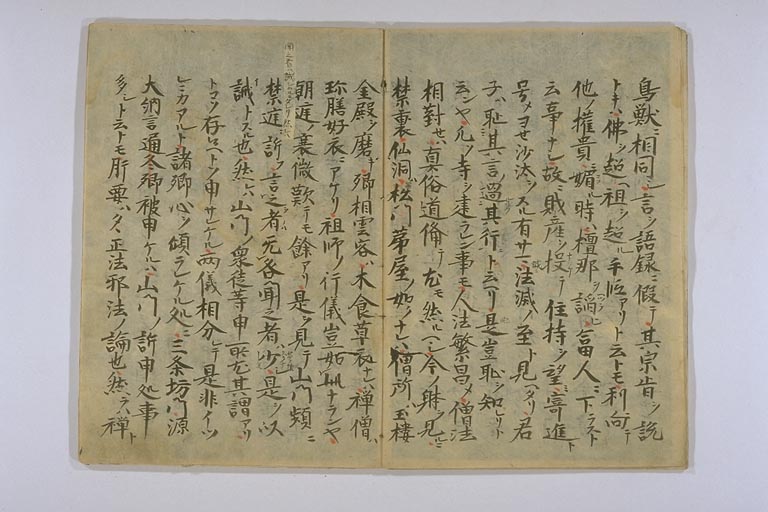 鳥獣ニ相同シ言ヲ語録ニ假テ其宗旨ヲ説
トキハ佛ヲ超ヘ祖ヲ超ル手段アリト云トモ利ニ向テ
他ノ權貴ニ媚ル時ハ檀那ニ謟ヒ富人ニ下ラスト
云事ナシ故ニ財産ヲ投テ住持ヲ望ミ寄進ト
号メヨセ沙汰ヲスル有サマ法滅ノ至ト見ヘタリ君
子ハ恥其言過其行ト云ヘリ是豈恥ヲ知レリト
云ンヤ凡ソ寺ヲ建ラレン事モ人法繁昌メ僧法
相對セハ真俗道備テ尤モ然ルヘシ今ノ躰ヲ見ルニ
禁裏仙洞ハ松門茅屋ノ如クナレハ僧所ハ玉樓
金殿ヲ磨キ卿相雲客ハ木食草衣ナレハ禪僧ハ
珎膳好衣ニアケリ祖師ノ行儀豈如此ナランヤ
朝庭ノ衰微歎テモ餘アリ是ヲ見テ山門頻ニ
禁庭ニ訴フ言之者无咎聞之者
誡トスル也然レハ山門ノ衆徒等申所尤其謂アリ
トコソ存候ヘト申サレケル両儀相分レテ是非イツ
レニカアルト諸卿心ヲ傾ラレケル処ニ三条坊門源
大納言通冬卿被申ケルハ山門ノ訴申処事
多シト云トモ肝要ハタヽ正法邪法ノ論也然ラハ禪ト